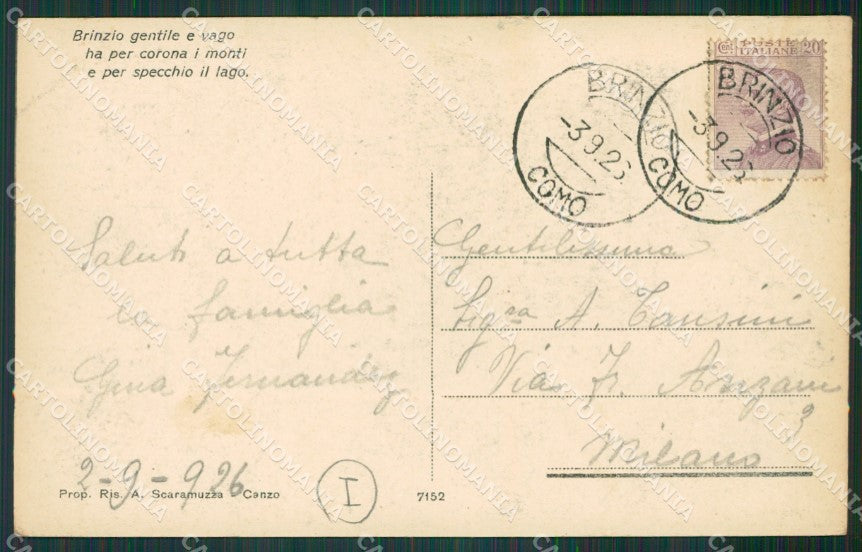 Brinzio gentile e vago
ha per corona i monti
e per specchio il lago.
Cent. POSTE ITALIANE 20
BRINZIO
-3.9.26
COMO
BRINZIO
-3.9.26
COMO
Saluti a tutta
la famiglia
Gina Fernandez
2-9-926
Prop. Ris. A. Scaramuzza - Canzo
I
7152
Gentilissima
Sig.ra A. Tansini
Via Fr. Anzani
9
Milano
CARTOLINOMANIA